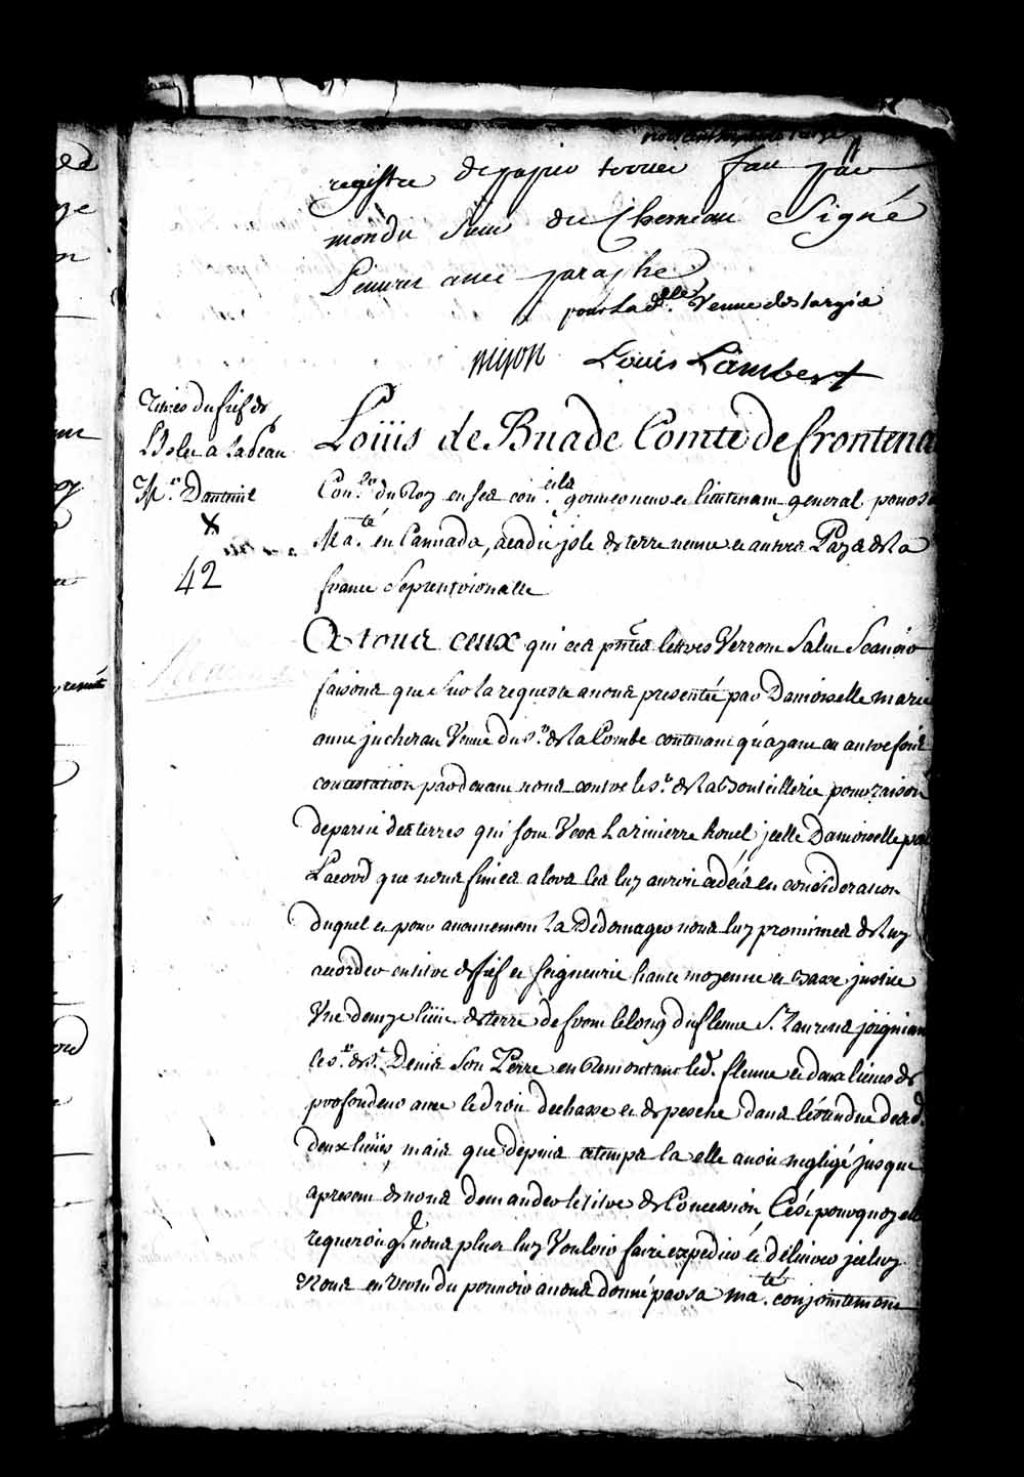 registre de papier trouué fait par
mondit Sieur du Chesneau Signé
Peuuret auec paraphe
pour lad. elle Veuue deslargie
mijon Louis Lambert
Titres du fief de
L'Islet a la Peau
Mr. Dauteuil
X
42
Loüis de Buade Comte de frontena
Con.er du Roy en ses con.eils gouuerneur et lieutenant general pour sa
Ma.té en Cannada, acadie jsle de terre neuue et autres Pays de la
france Septentrionalle
A tous ceux qui ces pntes lettres Verront Salut Scauoir
faisons que Sur la requeste a nous presentée par Damoiselle marie
anne juchereau Veuue du Sr. de la Combe contenant qu'ayant eu autre fois
contestation pardeuant nous contre le Sr. de la Bouteillerie pour raison
de partie des terres qui sont Vers la riuierre houel, jcelle Damoiselle par
Lacord que nous fimes alors les luy auroit cédées en consideration
duquel et pour aucunement la Dédomager nous luy promimes de luy
accorder en titre de fief et seigneurie haute moyenne et basse justice
Vne demye lieüe de terre de front le long du fleuue St. Laurens joignant
le Sr. de St. Denis Son Perre en Remontant led. fleuue et deux lieues de
profondeur auec le droit de chasse et de pesche dans l'éstendue desd.
deux lieües, mais que depuis ce temps la elle auoit negligé jusque
a present de nous demander le titre de Concession, C'est pourquoy elle
requeroit q. nous plust luy Vouloir faire expedier et déliurer jceluy
Nous en Vertu du pouuoir a nous donné par sa ma.té conjointement